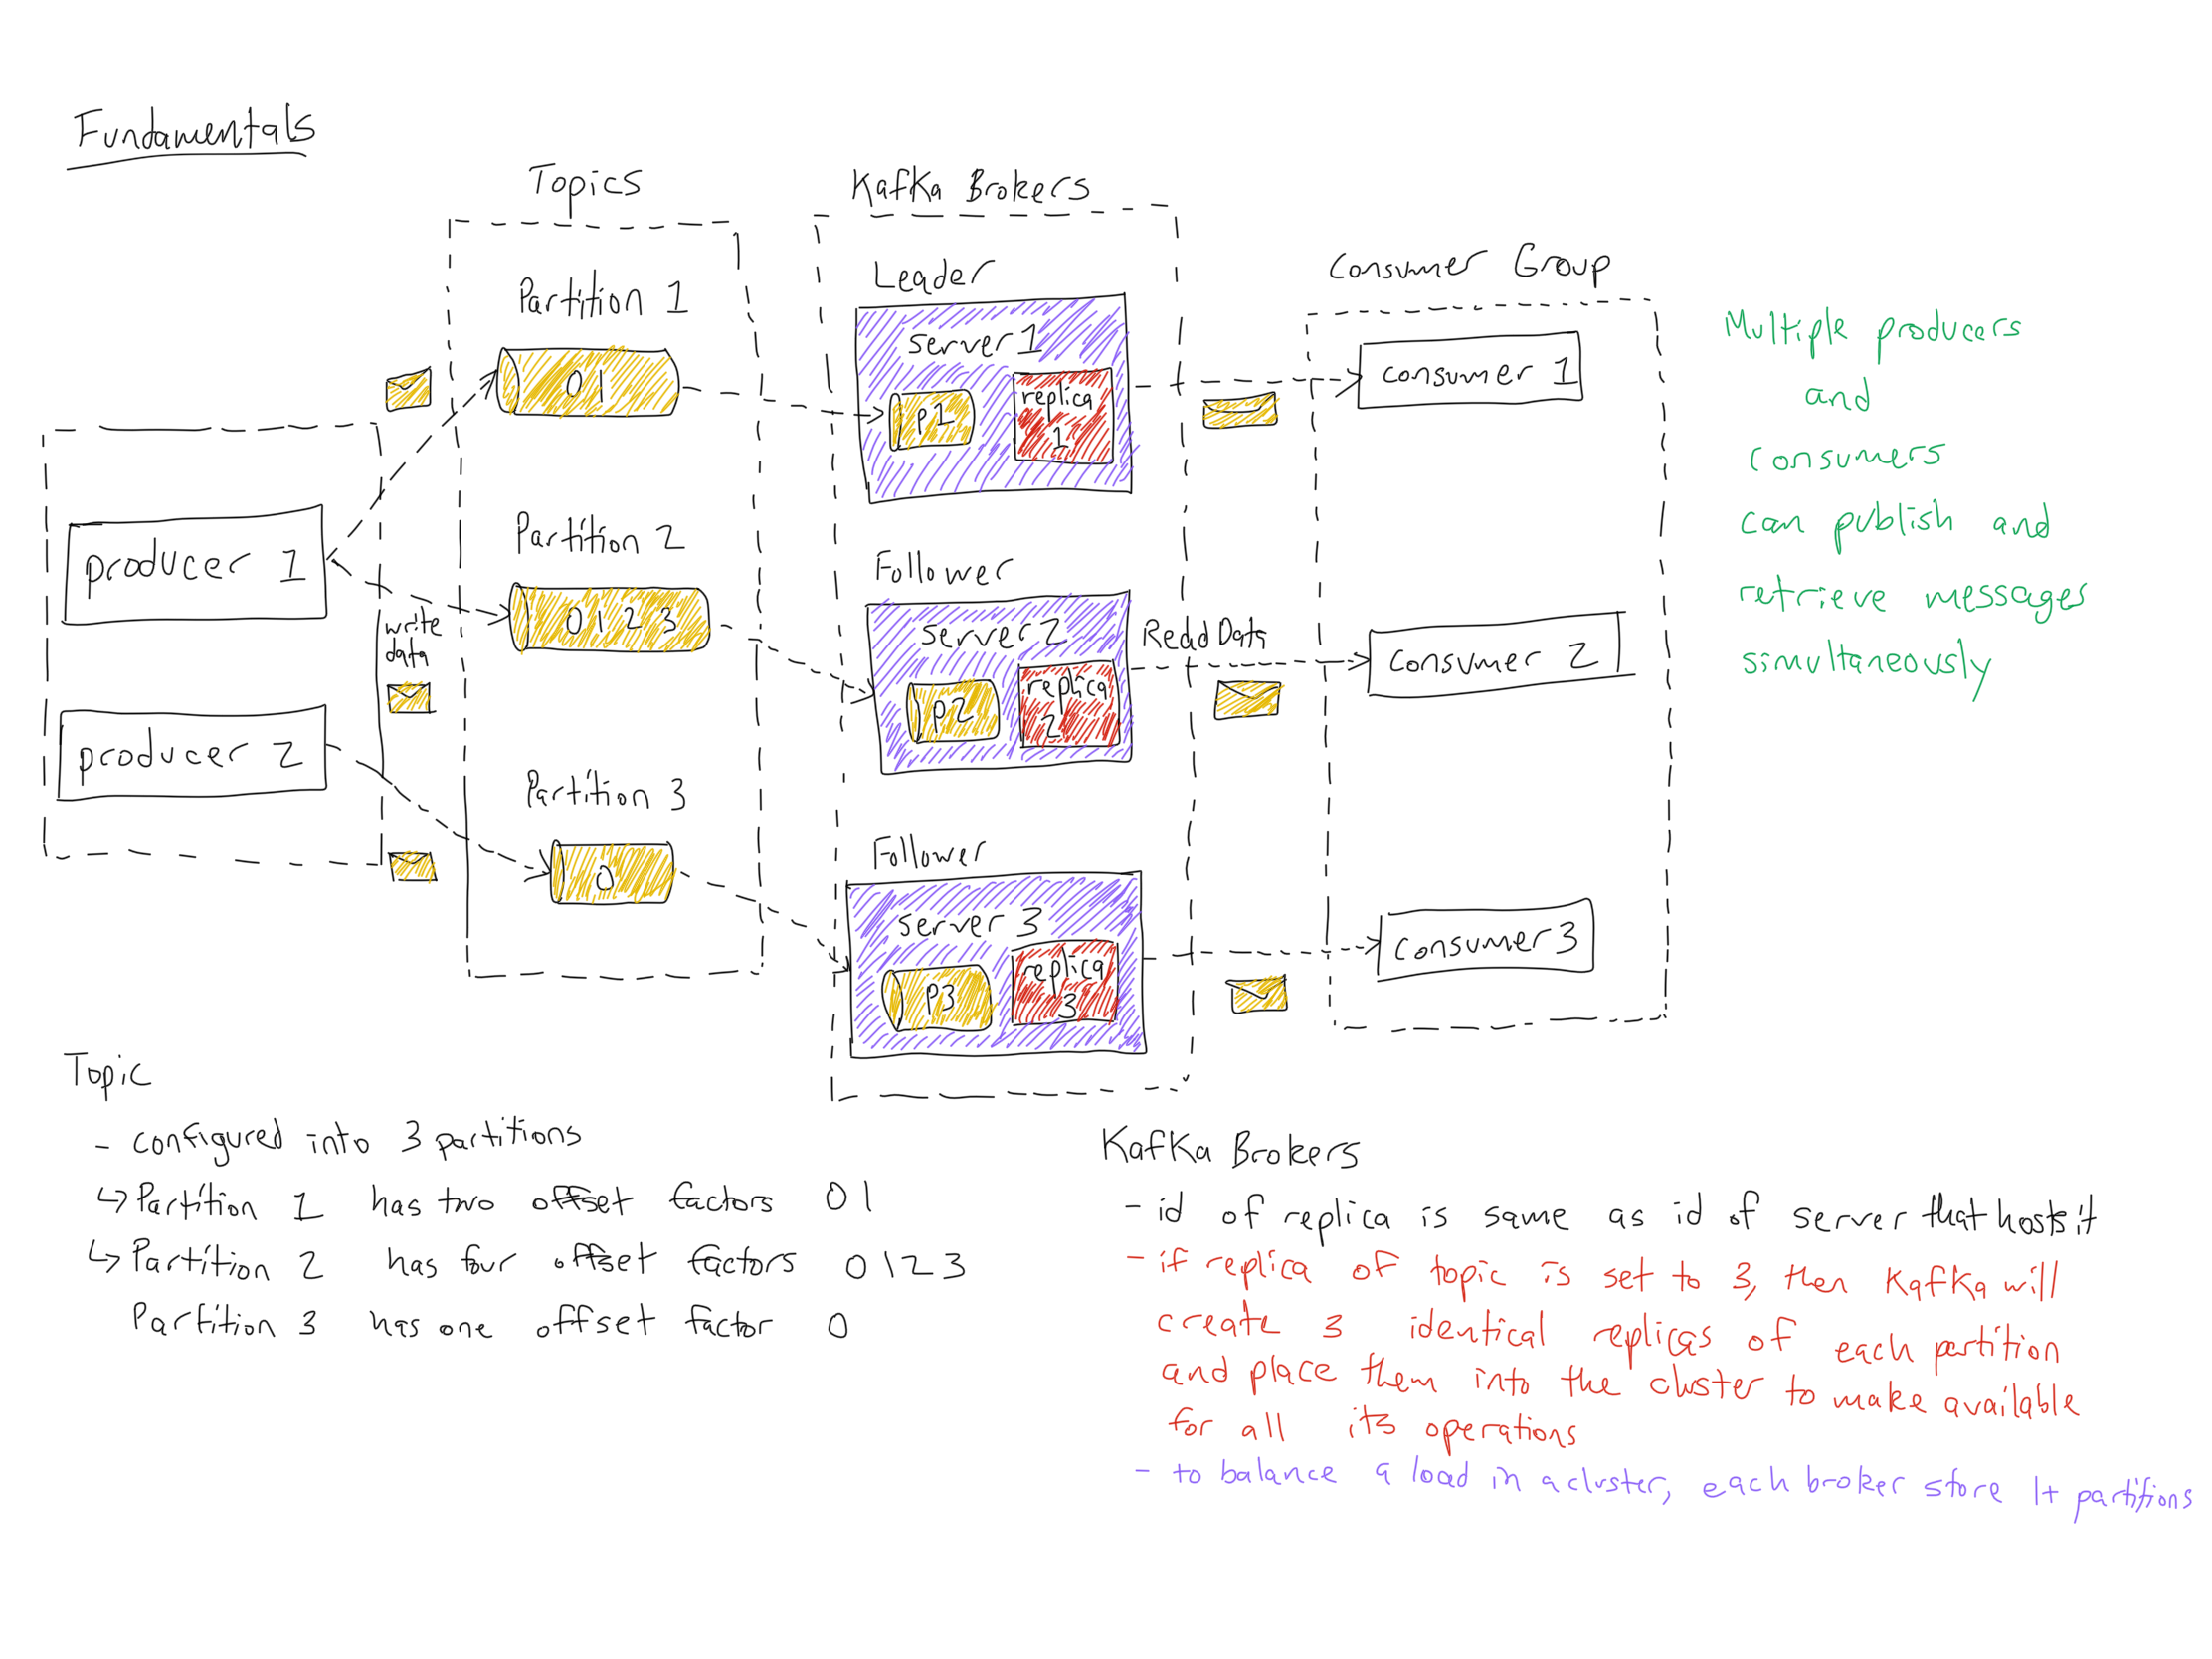 Fundamentals
Topics
Kafka Brokers
Consumer Group
Partition 1
0 1
Partition 2
0 1 2 3
Partition 3
0
producer 1
producer 2
write
data
Leader
server 1
p1
replica
1
Follower
server 2
p2
replica
2
Follower
server 3
p3
replica
3
Read Data
consumer 1
consumer 2
consumer 3
Multiple producers
and
consumers
can publish and
retrieve messages
simultaneously
Topic
- configured into 3 partitions
↳ Partition 1 has two offset factors 0 1
↳ Partition 2 has four offset factors 0 1 2 3
Partition 3 has one offset factor 0
Kafka Brokers
- id of replica is same as id of server that hosts it
- if replica of topic is set to 3, then Kafka will
create 3 identical replicas of each partition
and place them into the cluster to make available
for all its operations
- to balance a load in a cluster, each broker store 1+ partitions